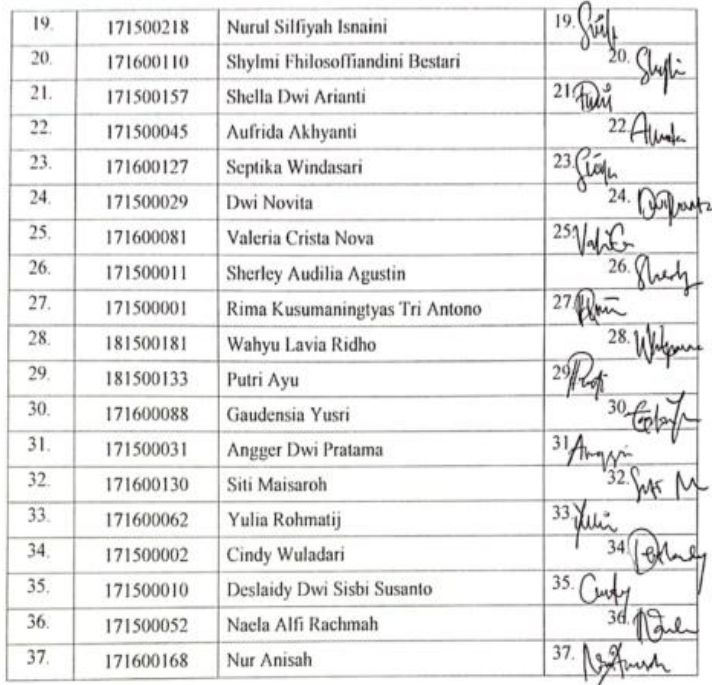 19. 171500218 Nurul Silfiyah Isnaini 19.
20. 171600110 Shylmi Fhilosoffiandini Bestari 20.
21. 171500157 Shella Dwi Arianti 21
22. 171500045 Aufrida Akhyanti 22.
23. 171600127 Septika Windasari 23.
24. 171500029 Dwi Novita 24.
25. 171600081 Valeria Crista Nova 25.
26. 171500011 Sherley Audilia Agustin 26. Sherly
27. 171500001 Rima Kusumaningtyas Tri Antono 27.
28. 181500181 Wahyu Lavia Ridho 28.
29. 181500133 Putri Ayu 29
30. 171600088 Gaudensia Yusri 30.
31. 171500031 Angger Dwi Pratama 31
32. 171600130 Siti Maisaroh 32. Siti M
33. 171600062 Yulia Rohmatij 33. Yulia
34. 171500002 Cindy Wuladari 34
35. 171500010 Deslaidy Dwi Sisbi Susanto 35. Cindy
36. 171500052 Naela Alfi Rachmah 36.
37. 171600168 Nur Anisah 37.